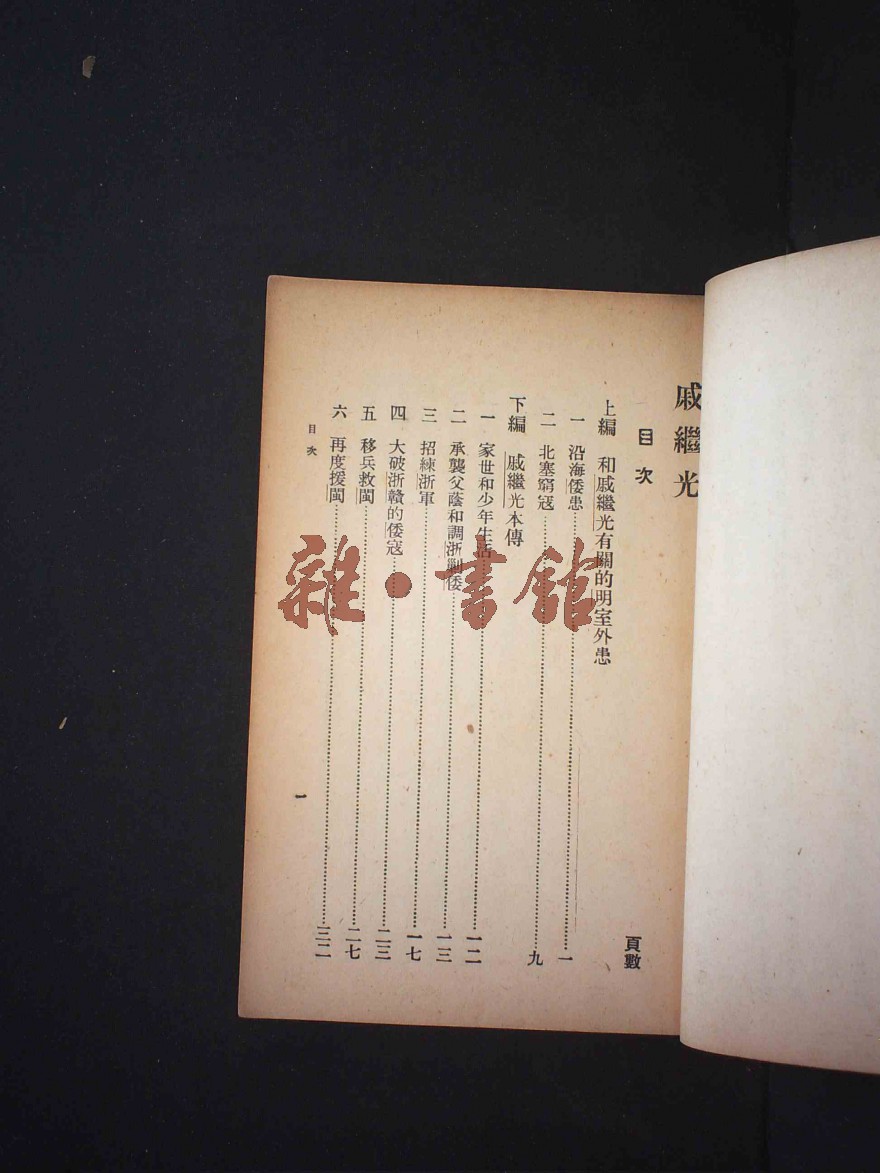 戚繼光
目次
頁數
上編 和戚繼光有關的明室外患
一 沿海倭患……一
二 北塞窮寇……九
下編 戚繼光本傳
一 家世和少年生活……一二
二 承襲父蔭和調浙剿倭……一三
三 招練浙軍……一七
四 大破浙贛的倭寇……二三
五 移兵救閩……二七
六 再度援閩……三二
目次
一
雜·書館